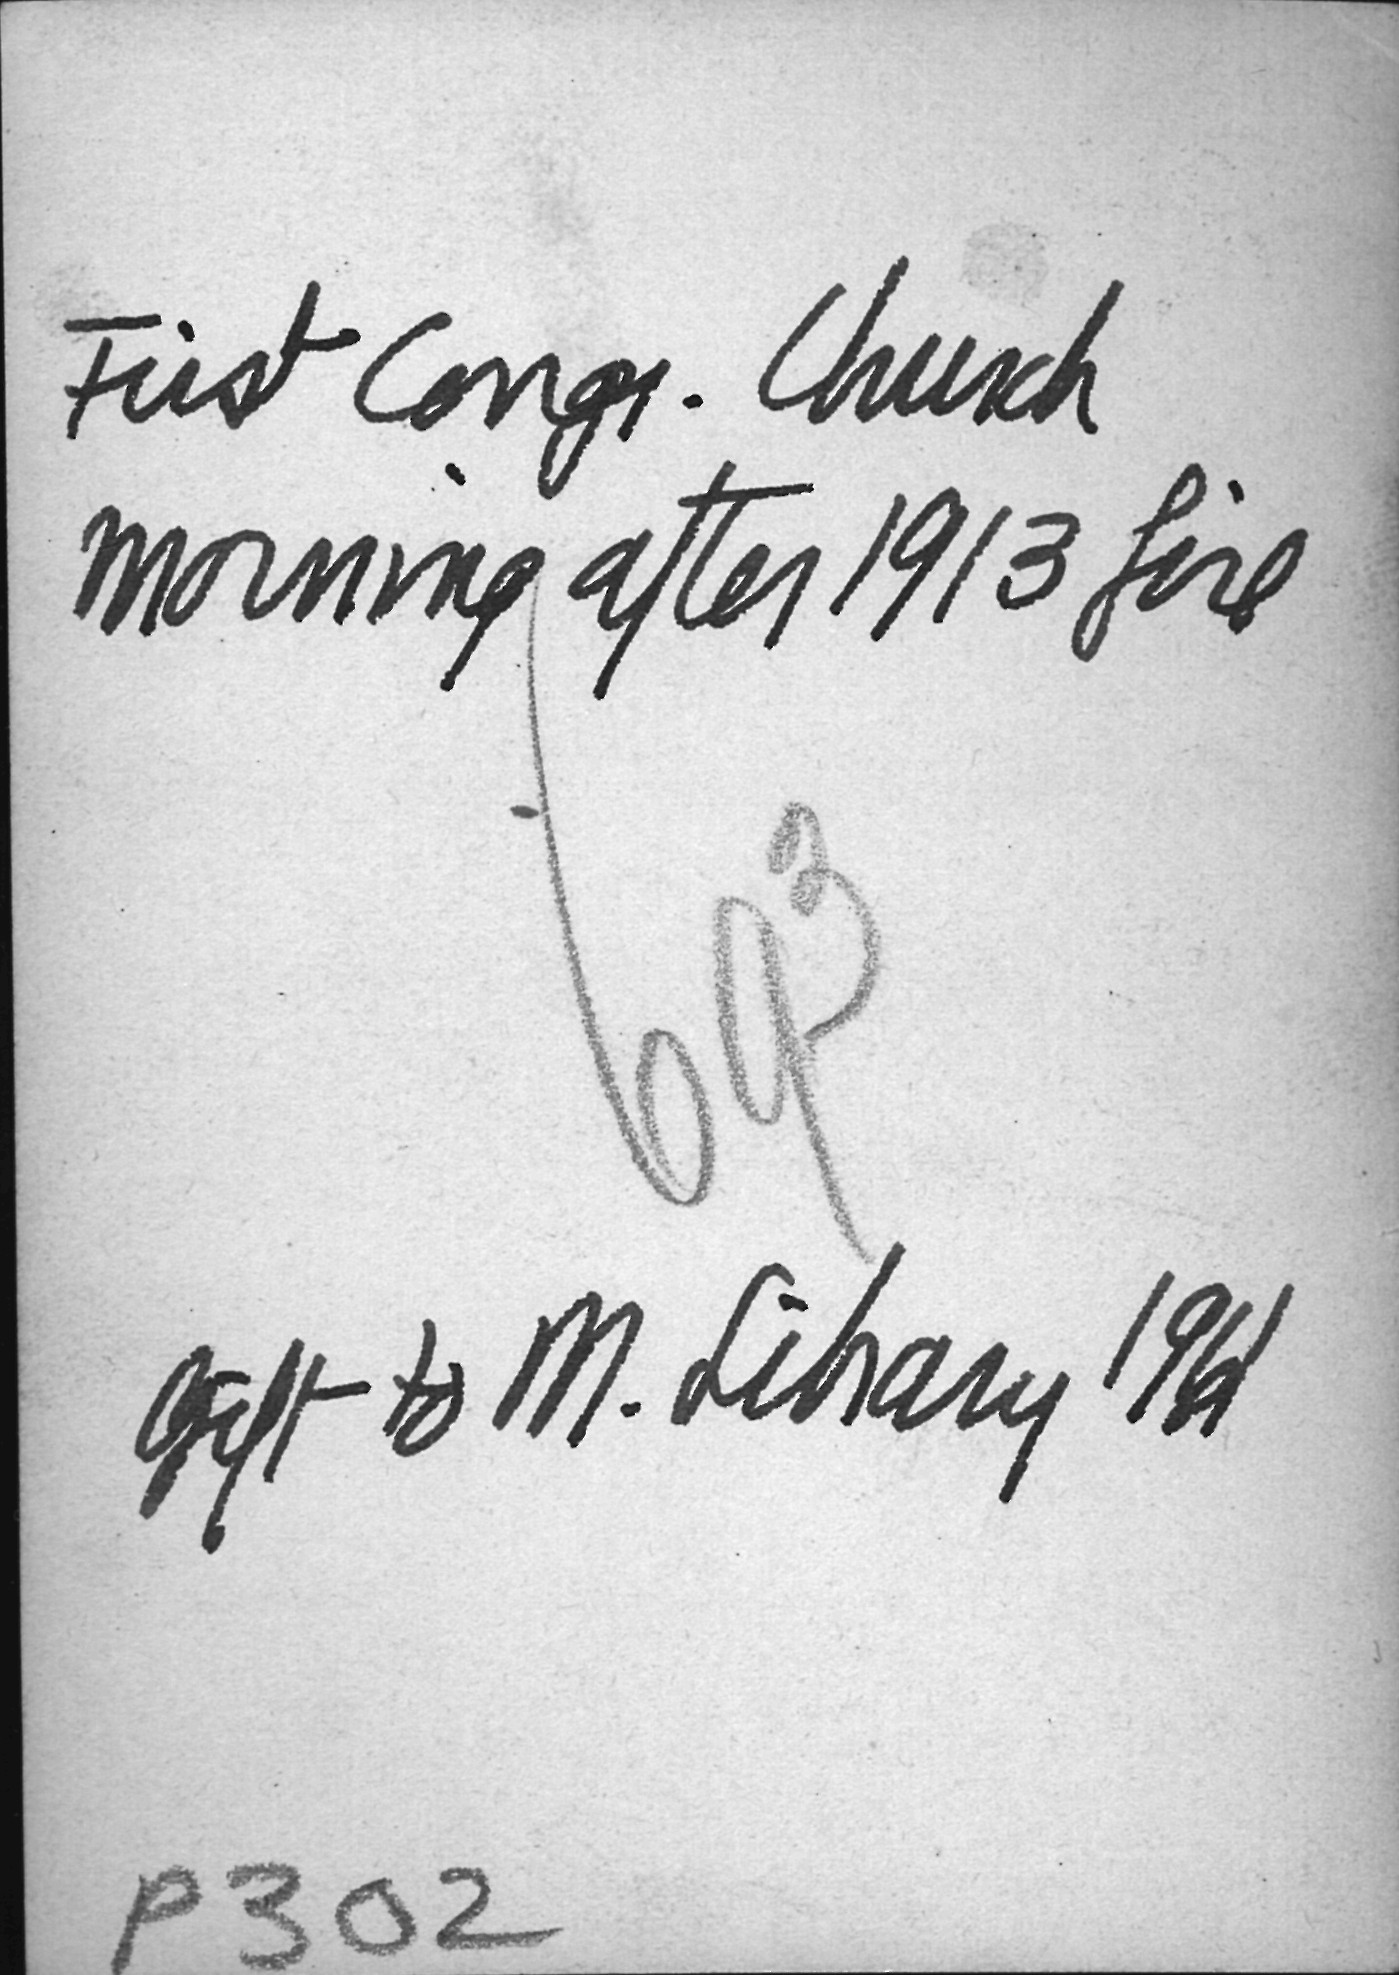 First Congr. Church
morning after 1913 fire
693
Gift to M. Library 1961
P302